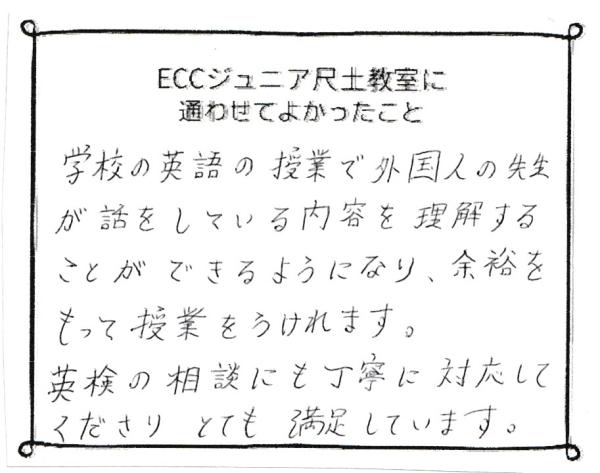 ECCジュニア尺土教室に
通わせてよかったこと
学校の英語の授業で外国人の先生
が話をしている内容を理解する
ことができるようになり、余裕を
もって授業をうけれます。
英検の相談にも丁寧に対応して
くださりとても満足しています。